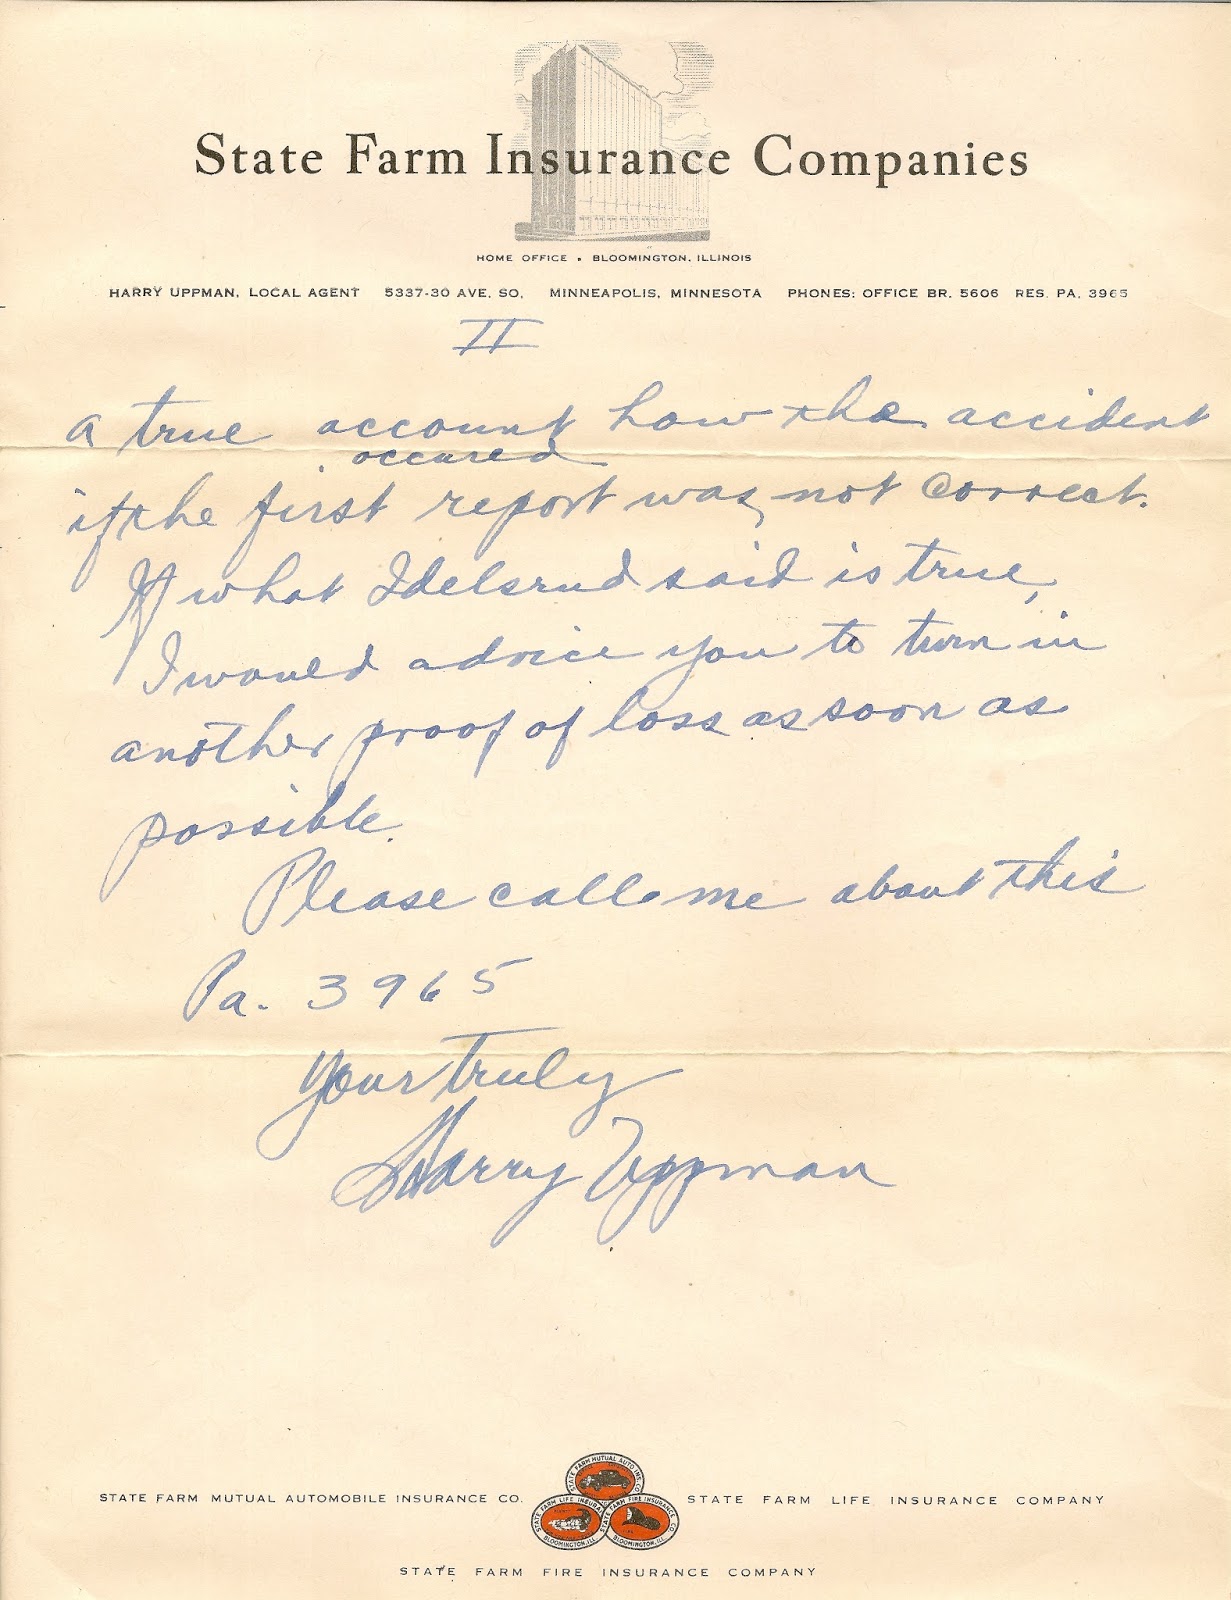 State Farm Insurance Companies
HOME OFFICE • BLOOMINGTON, ILLINOIS
HARRY UPPMAN, LOCAL AGENT 5337-30 AVE. SO. MINNEAPOLIS, MINNESOTA PHONES: OFFICE BR. 5606 RES. PA. 3965
II
a true account how the accident
occured
if the first report was not correct.
If what Idelsrud said is true,
I would advice you to turn in
another proof of loss as soon as
possible.
Please call me about this
Pa. 3965
Your truly
Harry Uppman
STATE FARM MUTUAL AUTO INS. CO.
STATE FARM MUTUAL AUTOMOBILE INSURANCE CO.
STATE FARM LIFE INSURANCE
BLOOMINGTON, ILL.
STATE FARM FIRE INSURANCE CO
BLOOMINGTON, ILL.
STATE FARM LIFE INSURANCE COMPANY
STATE FARM FIRE INSURANCE COMPANY